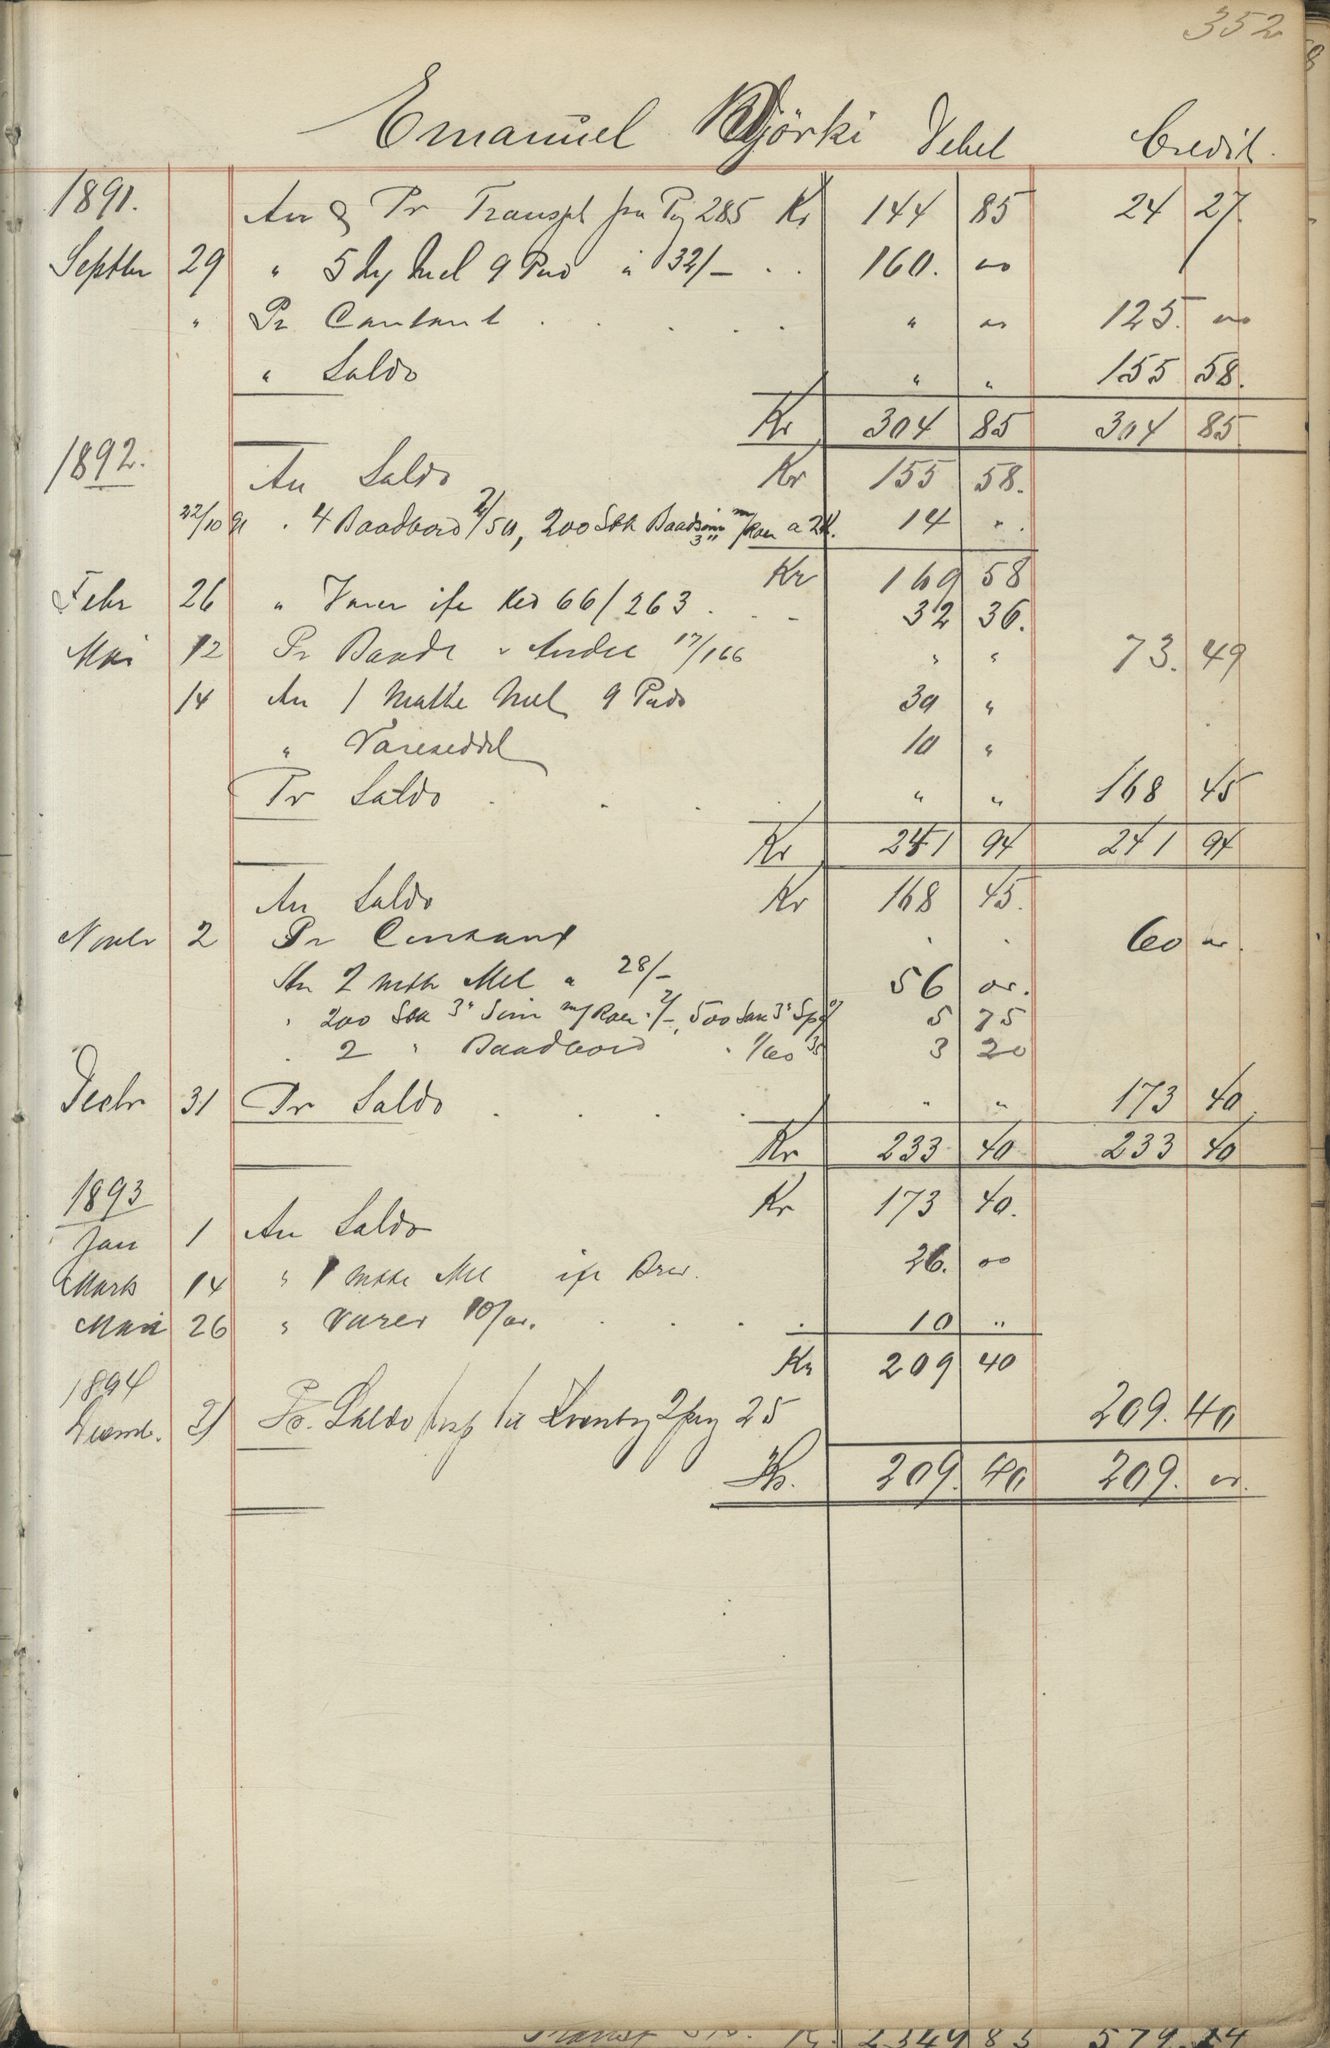 352
Emanuel Björki Debet Credit.
1891. An & Pr Transpt fra Pag 285 Kr 144 85 24 27
Septbr 29 " 5 Mel 9 Pud a 32/- 160. 00
" Pr Contant " 00 125. 00
" Saldo " " 155 58.
Kr 304 85 304 85
1892. An Saldo Kr 155 58.
22/10 91 " 4 Baadbord /50, 200 Stk Baadsöm 3" m/Roer a 2 Kr. 14 "
Kr 169 58
Febr 26 " Varer ifr Ked 66/263 32 36.
Mai 12 Pr Baade Andel 17/166 " " 73. 49
14 An 1 Matte Mel 9 Puds 30 "
" Vareseddel 10 "
Pr Saldo " " 168 45
Kr 241 94 241 94
An Saldo Kr 168 45.
Novbr 2 Pr Contant 60 00.
An 2 Mtte Mel a 28/- 56 00.
" 200 Stk 3" Söm m/Roer 2/-, 500 3" 5 75
" 2 " Baadbord 1/60 3 20
Decbr 31 Pr Saldo " " 173 40
Kr 233 40 233 40
1893
Jan 1 An Saldo Kr 173 40.
Marts 14 " 1 Mtte Mel ifr Brev. 26. 00
Mai 26 " Varer 10/00. 10 "
Kr 209 40
1894
Decemb. 31 Pr. Saldo til 2 pag 25 209. 40
Kr. 209. 40 209. 00.
Transp 2349 83 579. 14